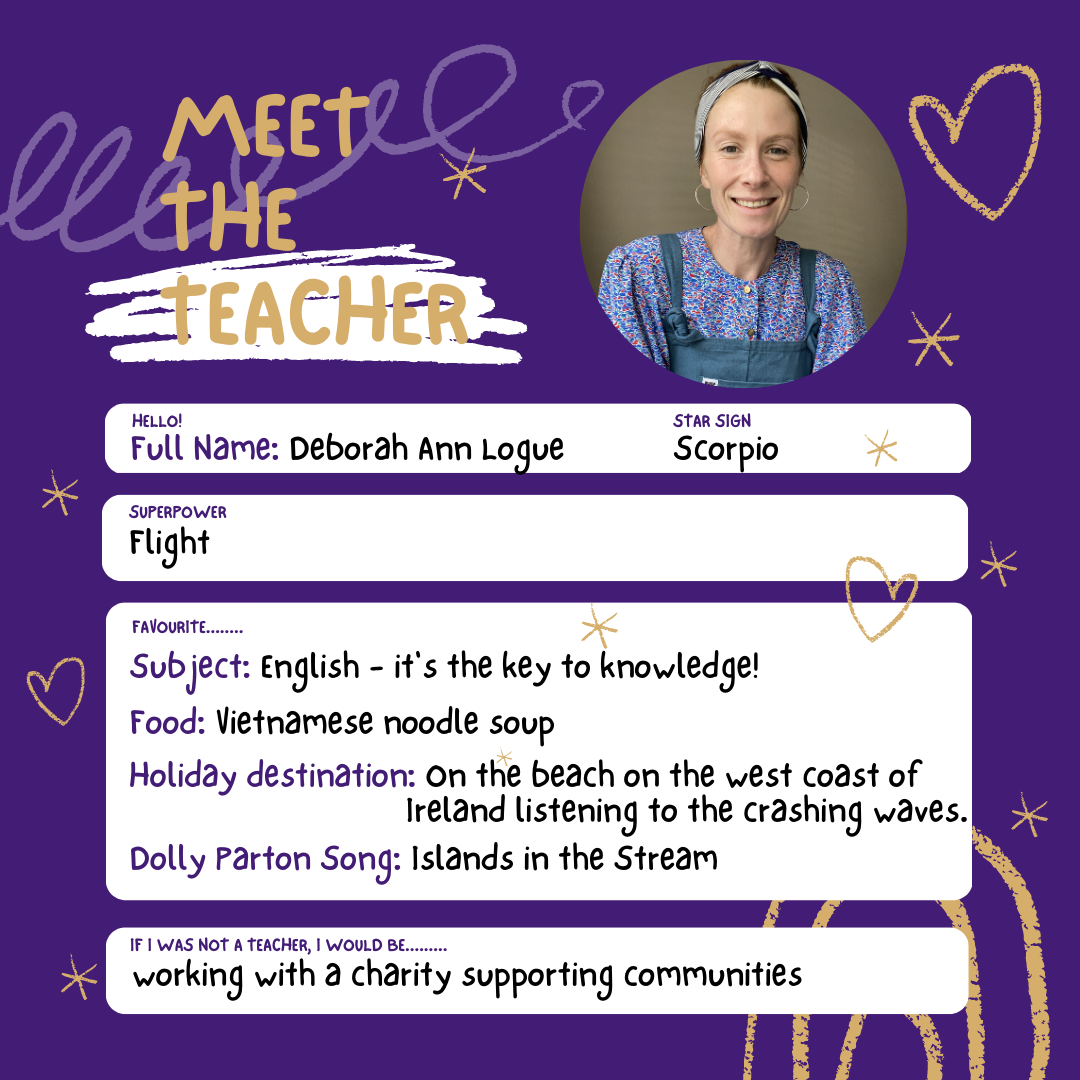 MEET
THE
TEACHER
HELLO!
Full Name: Deborah Ann Logue
STAR SIGN
Scorpio
SUPERPOWER
Flight
FAVOURITE........
Subject: English - it's the key to knowledge!
Food: Vietnamese noodle soup
Holiday destination: On the beach on the west coast of
Ireland listening to the crashing waves.
Dolly Parton Song: Islands in the Stream
IF I WAS NOT A TEACHER, I WOULD BE.........
working with a charity supporting communities